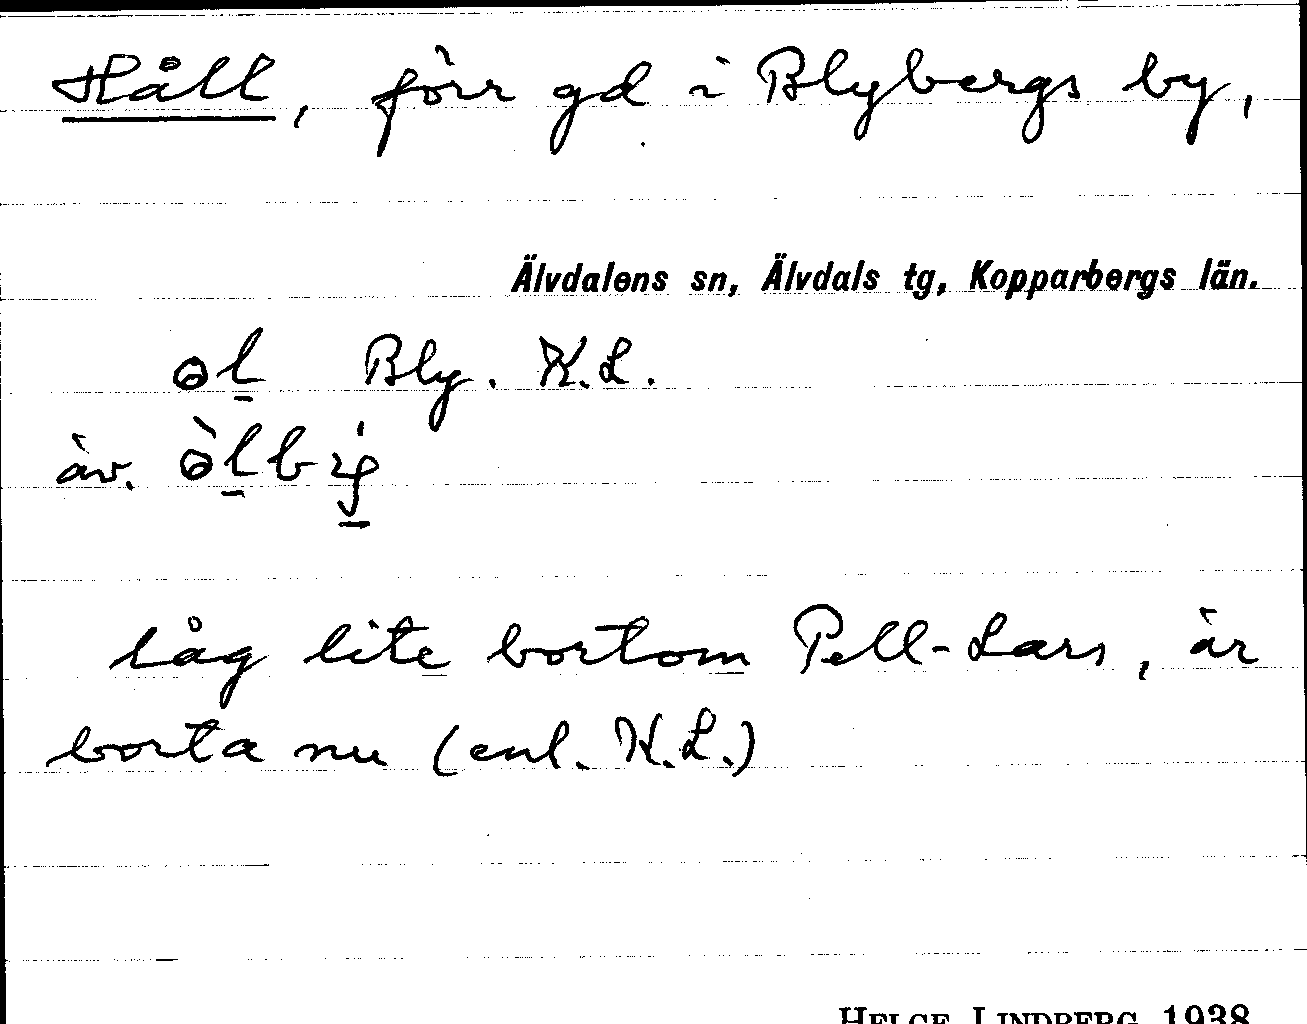 Håll, förr gd i Blybergs by,
Älvdalens sn, Älvdals tg, Kopparbergs län.
ɵl̲ Bly. K.L.
äv. ɵ̀l̲b
låg lite bortom Pell-Lars, är
borta nu (enl. K.L.)
HELGE LINDBERG 1938